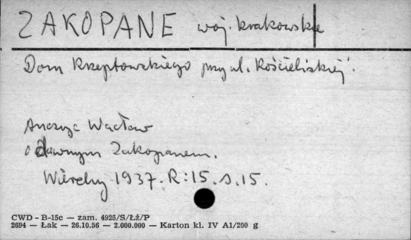 ZAKOPANE woj. krakowskie
Dom Krzeptowskiego przy ul. Kościeliskiej.
Anczyc Wacław
o dawnym Zakopanem.
Wierchy 1937. R:15. s.15.
CWD - B-15c — zam. 4925/S/Łż/P
2694 — Łak — 26.10.56 — 2.000.000 — Karton kl. IV A1/200 g